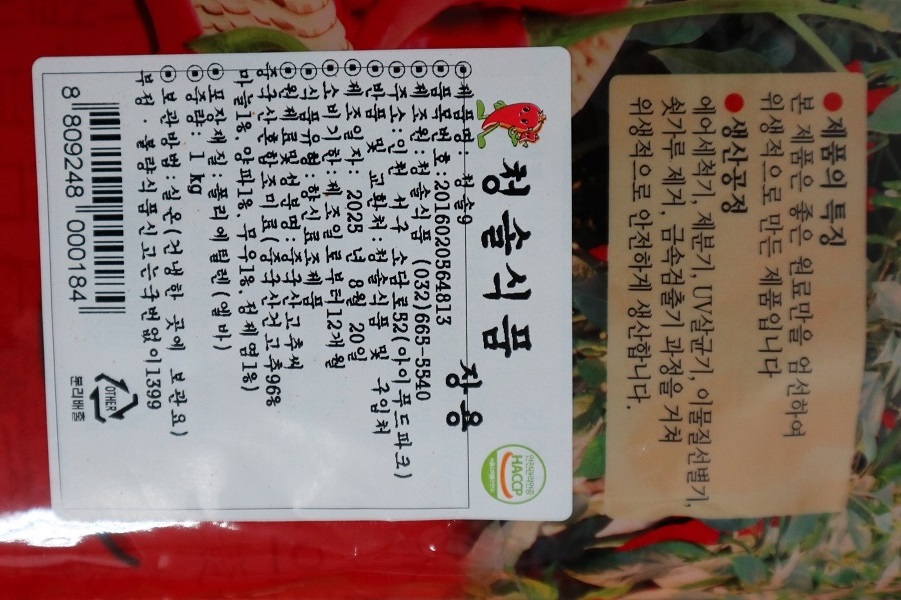 ● 제품의 특징
본 제품은 좋은 원료만을 엄선하여
위생적으로 만든 제품입니다
● 생산공정
에어세척기, 제분기, UV살균기, 이물질선별기,
쇳가루 제거, 금속검출기 과정을 거쳐
위생적으로 안전하게 생산합니다.
청솔식품
장용
HACCP
제품명: 청솔9
품목번호:2016020564813
제조원:청솔식품 (032)665-5540
주소:인천 서구 소담로52(아이푸드파크)
반품 및 교환처:청솔식품 및 구입처
제조일자: 2025 년 8월 20일
소비기한:제조일로부터12개월
식품유형:향신료조제품
원재료및성분명:중국산고추씨
중국산혼합조미료(중국산건고추96%
마늘1%. 양파1%. 무우1% 정제염1%)
포장재질:폴리에틸렌(엘바)
중량: 1 kg
보관방법:실온(건냉한 곳에 보관요)
부정·불량식품신고는국번없이1399
8 809248 000184
OTHER
분리배출